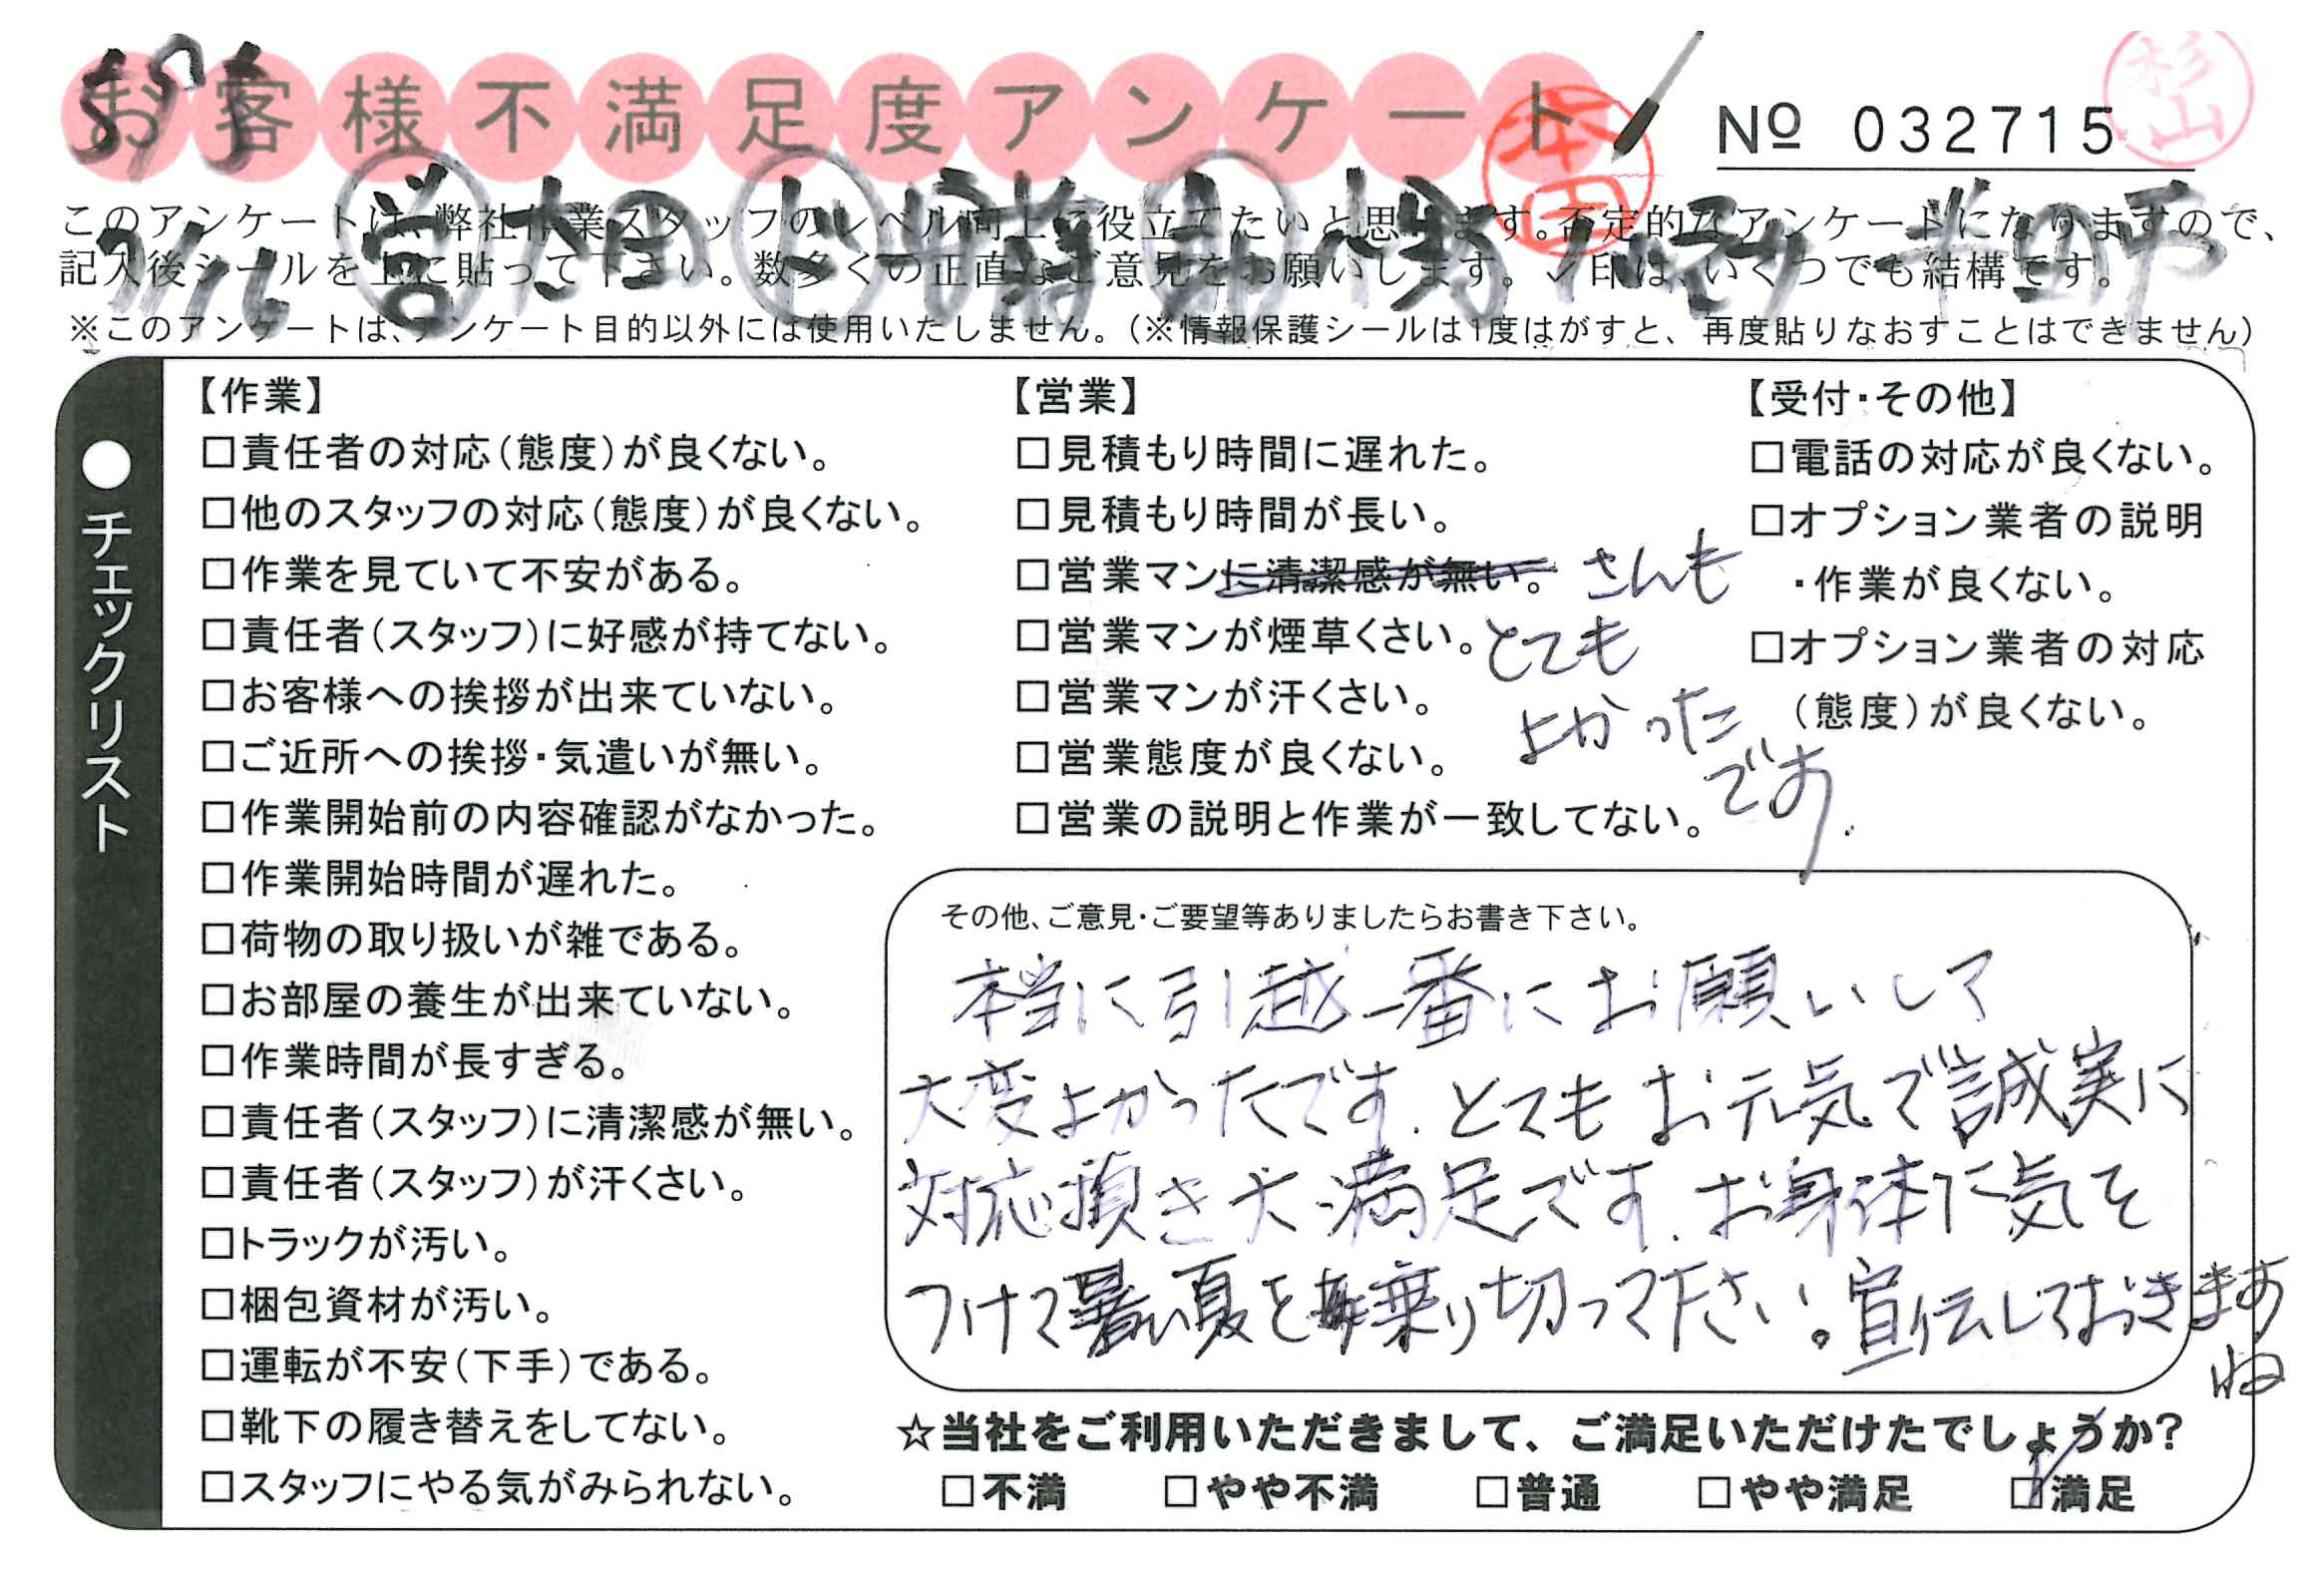 お客様不満足度アンケート
本田
杉山
№ 032715
7/16 営 太田
このアンケートは、弊社作業スタッフのレベル向上に役立てたいと思います。否定的なアンケートになりますので、
記入後シールを上に貼って下さい。数多くの正直なご意見をお願いします。✓印は、いくつでも結構です。
※このアンケートは、アンケート目的以外には使用いたしません。(※情報保護シールは1度はがすと、再度貼りなおすことはできません)
●チェックリスト
【作業】
□責任者の対応(態度)が良くない。
□他のスタッフの対応(態度)が良くない。
□作業を見ていて不安がある。
□責任者(スタッフ)に好感が持てない。
□お客様への挨拶が出来ていない。
□ご近所への挨拶・気遣いが無い。
□作業開始前の内容確認がなかった。
□作業開始時間が遅れた。
□荷物の取り扱いが雑である。
□お部屋の養生が出来ていない。
□作業時間が長すぎる。
□責任者(スタッフ)に清潔感が無い。
□責任者(スタッフ)が汗くさい。
□トラックが汚い。
□梱包資材が汚い。
□運転が不安(下手)である。
□靴下の履き替えをしてない。
□スタッフにやる気がみられない。
【営業】
□見積もり時間に遅れた。
□見積もり時間が長い。
□営業マンに清潔感が無い。
□営業マンが煙草くさい。
□営業マンが汗くさい。
□営業態度が良くない。
□営業の説明と作業が一致してない。
さんも
とても
よかった
です.
【受付・その他】
□電話の対応が良くない。
□オプション業者の説明
・作業が良くない。
□オプション業者の対応
(態度)が良くない。
その他、ご意見・ご要望等ありましたらお書き下さい。
本当に引越一番にお願いして
大変よかったです. とてもお元気で誠実に
対応頂き大満足です. お身体に気を
つけて暑い夏を乗り切って下さい。宣伝しておきます
ね
☆当社をご利用いただきまして、ご満足いただけたでしょうか?
□不満 □やや不満 □普通 □やや満足 ☑満足